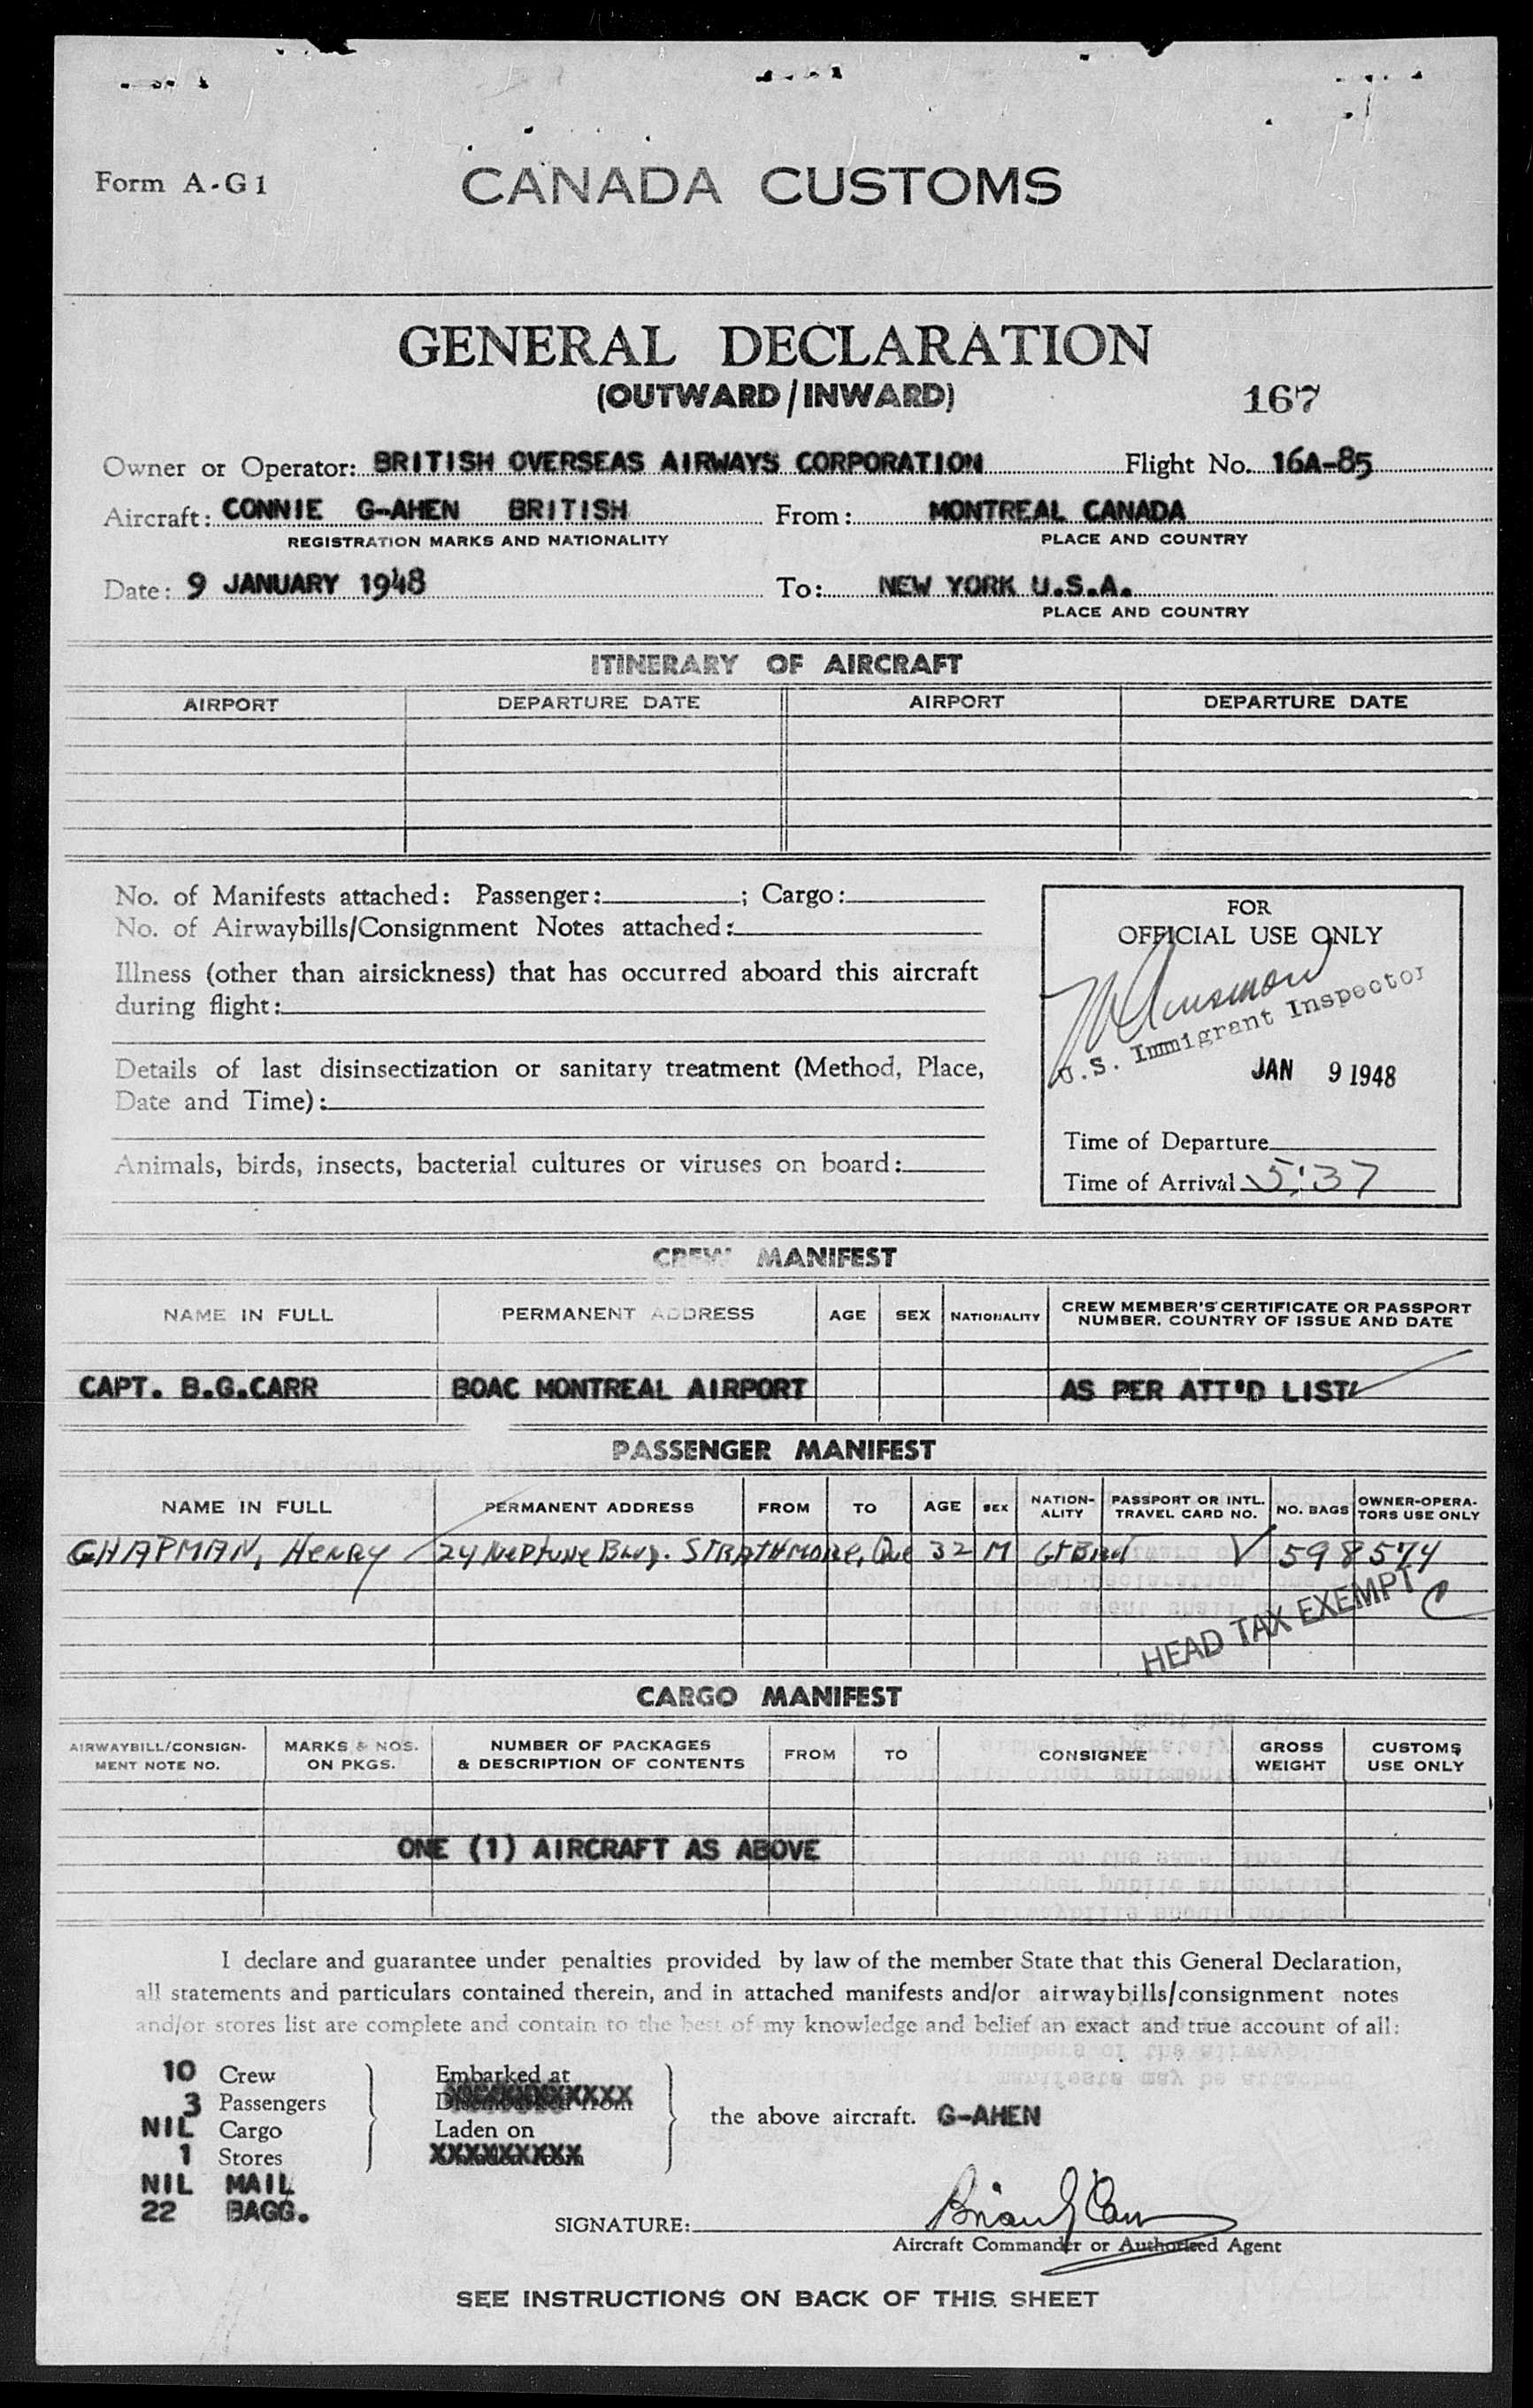 Form A-G1
CANADA CUSTOMS
GENERAL DECLARATION
(OUTWARD/INWARD)
167
Owner or Operator: BRITISH OVERSEAS AIRWAYS CORPORATION Flight No. 16A-85
Aircraft: CONNIE G-AHEN BRITISH From: MONTREAL CANADA
REGISTRATION MARKS AND NATIONALITY PLACE AND COUNTRY
Date: 9 JANUARY 1948 To: NEW YORK U.S.A.
PLACE AND COUNTRY
ITINERARY OF AIRCRAFT
AIRPORT DEPARTURE DATE AIRPORT DEPARTURE DATE
No. of Manifests attached: Passenger: ; Cargo:
No. of Airwaybills/Consignment Notes attached:
Illness (other than airsickness) that has occurred aboard this aircraft
during flight:
Details of last disinsectization or sanitary treatment (Method, Place,
Date and Time):
Animals, birds, insects, bacterial cultures or viruses on board:
FOR
OFFICIAL USE ONLY
U.S. Immigrant Inspector
JAN 9 1948
Time of Departure
Time of Arrival 5:37
CREW MANIFEST
NAME IN FULL PERMANENT ADDRESS AGE SEX NATIONALITY CREW MEMBER'S CERTIFICATE OR PASSPORT
NUMBER. COUNTRY OF ISSUE AND DATE
CAPT. B.G.CARR BOAC MONTREAL AIRPORT AS PER ATT'D LIST
PASSENGER MANIFEST
NAME IN FULL PERMANENT ADDRESS FROM TO AGE SEX NATION-
ALITY PASSPORT OR INTL.
TRAVEL CARD NO. NO. BAGS OWNER-OPERA-
TORS USE ONLY
CHAPMAN, Henry 24 Neptune Blvd. STRATHMORE, Que 32 M V 598574
HEAD TAX EXEMPT
CARGO MANIFEST
AIRWAYBILL/CONSIGN-
MENT NOTE NO. MARKS & NOS.
ON PKGS. NUMBER OF PACKAGES
& DESCRIPTION OF CONTENTS FROM TO CONSIGNEE GROSS
WEIGHT CUSTOMS
USE ONLY
ONE (1) AIRCRAFT AS ABOVE
I declare and guarantee under penalties provided by law of the member State that this General Declaration,
all statements and particulars contained therein, and in attached manifests and/or airwaybills/consignment notes
and/or stores list are complete and contain to the best of my knowledge and belief an exact and true account of all:
10 Crew Embarked at
3 Passengers
NIL Cargo Laden on
1 Stores
the above aircraft. G-AHEN
NIL MAIL
22 BAGG.
SIGNATURE: Brian G Carr
Aircraft Commander or Authorized Agent
SEE INSTRUCTIONS ON BACK OF THIS SHEET